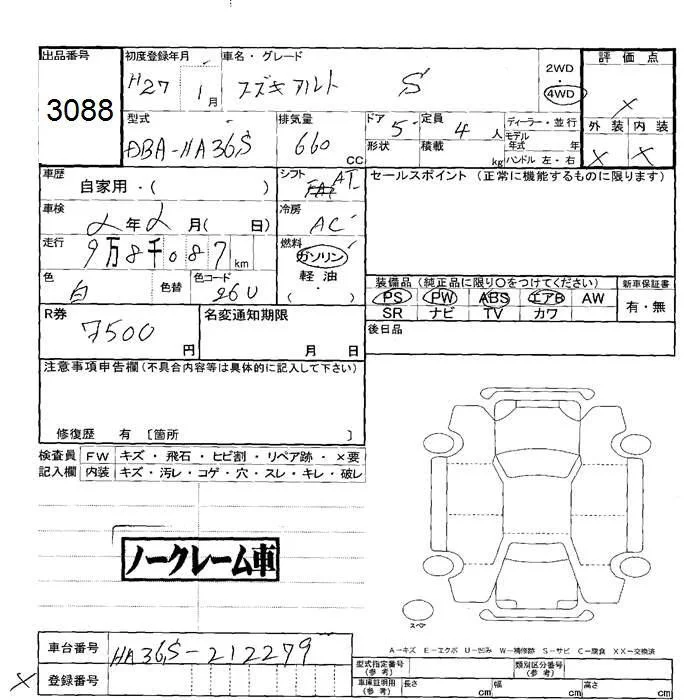 出品番号 初度登録年月 車名・グレード 2WD・4WD 評価点
3088 H27 1月 スズキアルト S ×
型式 排気量 ドア 定員 ディーラー・並行 外装 内装
DBA-HA36S 660 CC 5 4人 モデル年式 年 × ×
形状 積載 kg ハンドル 左・右
車歴 シフト セールスポイント(正常に機能するものに限ります)
自家用・( ) AT
車検 冷房
2年2月( 日) AC
走行 燃料
9万8千087km ガソリン
軽油
( ・ )
色 色替 色コード 装備品(純正品に限り○をつけてください) 新車保証書
白 26U PS PW ABS エアB AW 有・無
SR ナビ TV カワ
R券 名変通知期限 後日品
7500円 月 日
注意事項申告欄(不具合内容等は具体的に記入して下さい)
修復歴 有 [箇所 ]
検査員 FW キズ・飛石・ヒビ割・リペア跡・×要
記入欄 内装 キズ・汚レ・コゲ・穴・スレ・キレ・破レ
ノークレーム車
スペア
A-キズ E-エクボ U-凹み W-補修跡 S-サビ C-腐食 XX-交換済
車台番号 HA36S-212279
型式指定番号(参考) 類別区分番号(参考)
× 登録番号
車庫証明用(参考) 長さ cm 幅 cm 高さ cm